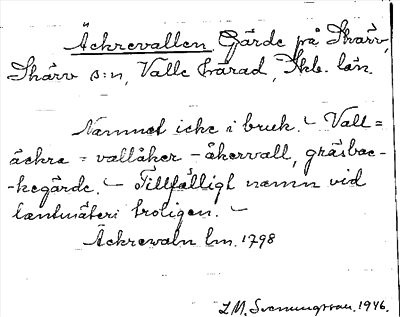 Äckrevallen Gärde på Skärv,
Skärv s:n, Valle härad, Skb. län.
Namnet icke i bruk. – Vall=
äckra = vallåker – åkervall, gräsbac-
-kegärde. – Tillfälligt namn vid
lantmäteri troligen. –
Äckrewaln lm. 1798
L.M. Svenungsson. 1946.